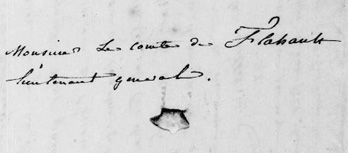 Monsieur Le comte de Flahault
lieutenant general.